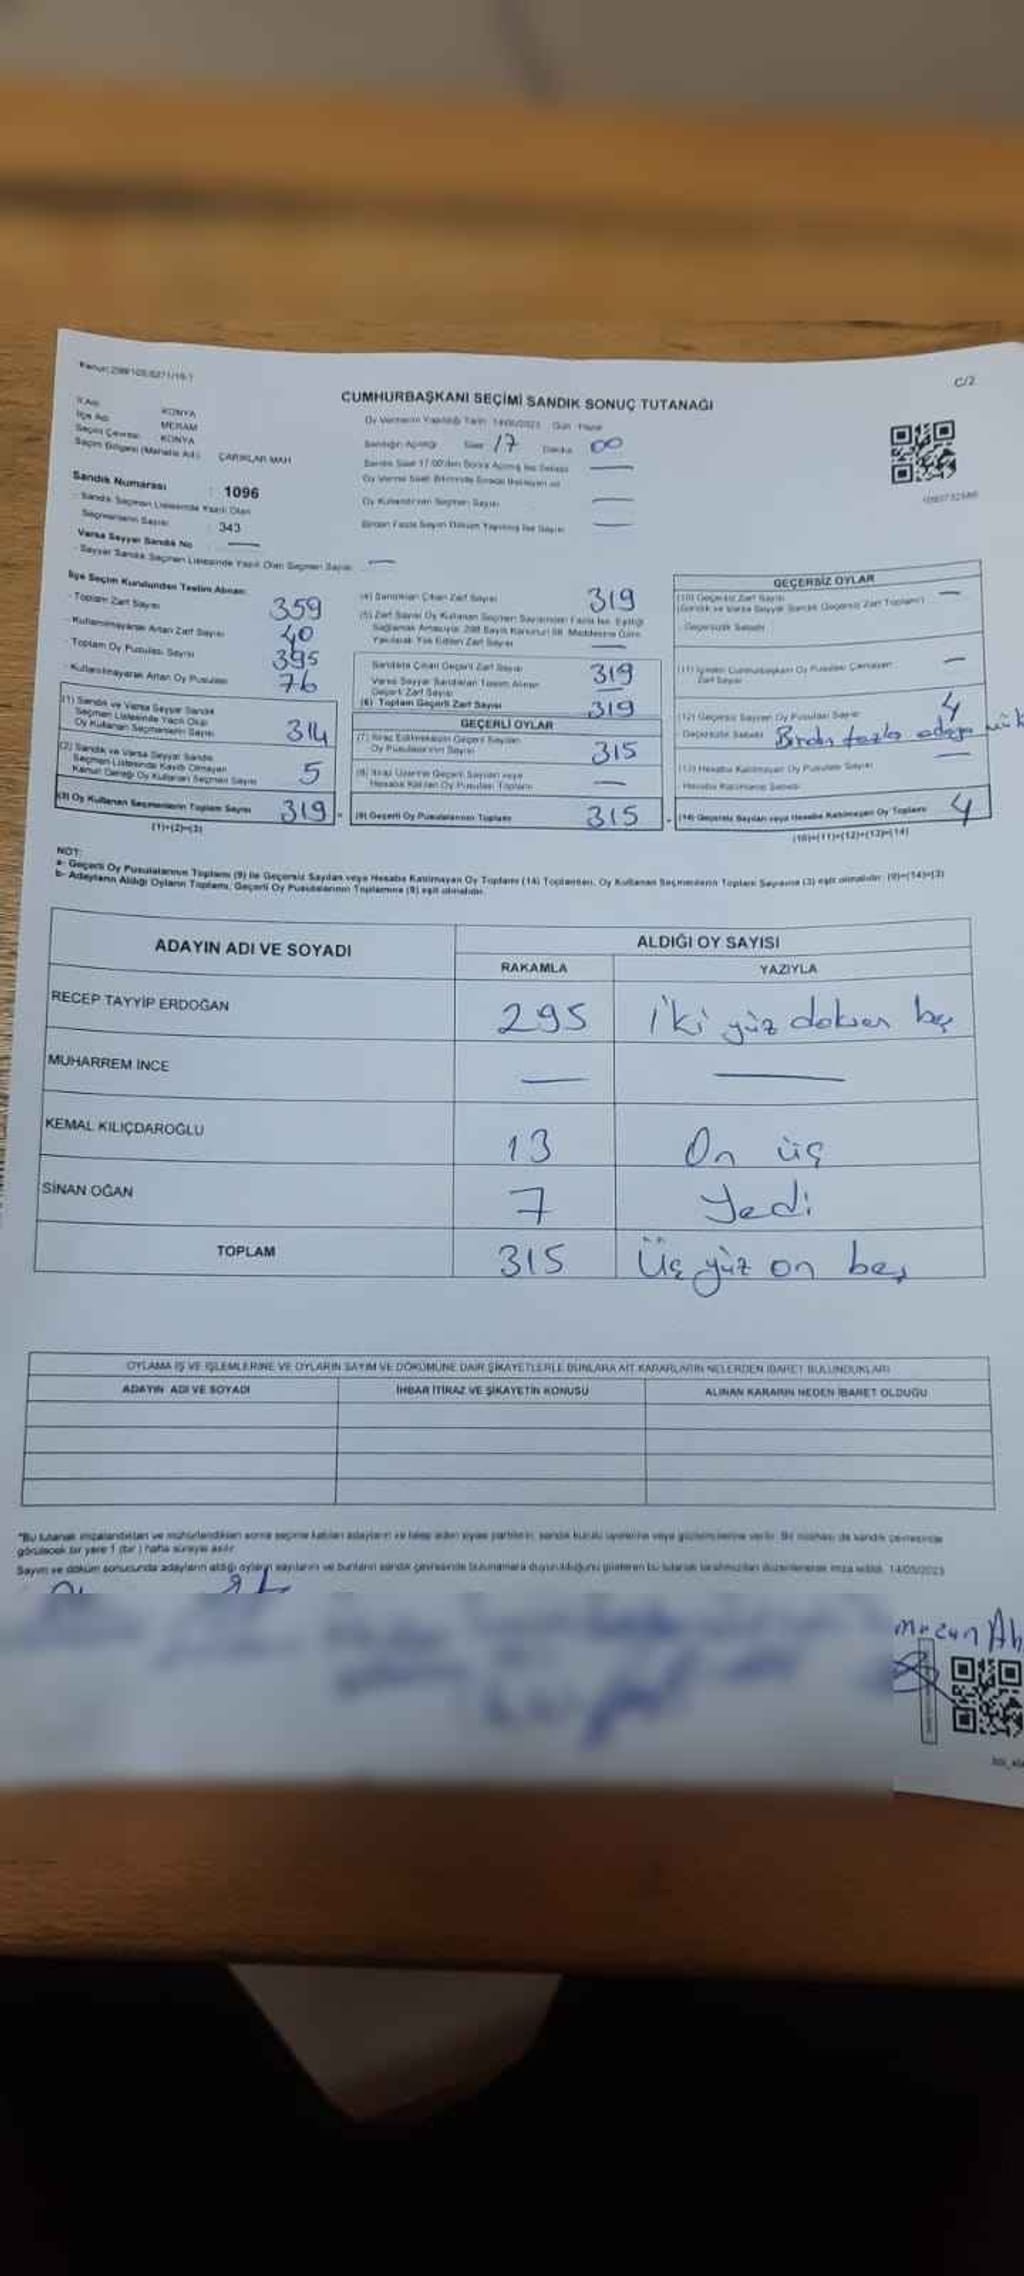 C/2
CUMHURBAŞKANI SEÇİMİ SANDIK SONUÇ TUTANAĞI
İl Adı KONYA
İlçe Adı MERAM
Seçim Çevresi KONYA
Seçim Bölgesi (Mahalle Adı) ÇARIKLAR MAH
Oy Vermenin Yapıldığı Tarih 14/05/2023 Gün Pazar
Sandığın Açıldığı Saat 17 Dakika 00
Sandık Numarası : 1096
Sandık Seçmen Listesinde Yazılı Olan
Seçmenlerin Sayısı : 343
Varsa Seyyar Sandık No —
- Seyyar Sandık Seçmen Listesinde Yazılı Olan Seçmen Sayısı —
Oy Kullandırılan Seçmen Sayısı —
Birden Fazla Sayım Döküm Yapılmış İse Sayısı —
İlçe Seçim Kurulundan Teslim Alınan:
- Toplam Zarf Sayısı 359
- Kullanılmayarak Artan Zarf Sayısı 40
Toplam Oy Pusulası Sayısı 395
- Kullanılmayarak Artan Oy Pusulası 76
(1) Sandık ve Varsa Seyyar Sandık
Seçmen Listesinde Yazılı Olup
Oy Kullanan Seçmenlerin Sayısı 314
(2) Sandık ve Varsa Seyyar Sandık
Seçmen Listesinde Kaydı Olmayan
Kanun Gereği Oy Kullanan Seçmen Sayısı 5
(3) Oy Kullanan Seçmenlerin Toplam Sayısı 319
(1)+(2)=(3)
(4) Sandıktan Çıkan Zarf Sayısı 319
(5) Zarf Sayısı Oy Kullanan Seçmen Sayısından Fazla İse, Eşitliği
Sağlamak Amacıyla 298 Sayılı Kanunun 98. Maddesine Göre
Yakılarak Yok Edilen Zarf Sayısı —
Sandıkta Çıkan Geçerli Zarf Sayısı 319
Varsa Seyyar Sandıktan Teslim Alınan
Geçerli Zarf Sayısı —
(6) Toplam Geçerli Zarf Sayısı 319
GEÇERLİ OYLAR
(7) İtiraz Edilmeksizin Geçerli Sayılan
Oy Pusulalarının Sayısı 315
(8) İtiraz Üzerine Geçerli Sayılan veya
Hesaba Katılan Oy Pusulası Toplamı —
(9) Geçerli Oy Pusulalarının Toplamı 315
GEÇERSİZ OYLAR
(10) Geçersiz Zarf Sayısı —
(Sandık ve Varsa Seyyar Sandık Geçersiz Zarf Toplamı)
Geçersizlik Sebebi
(11) İçinden Cumhurbaşkanı Oy Pusulası Çıkmayan
Zarf Sayısı —
(12) Geçersiz Sayılan Oy Pusulası Sayısı 4
Geçersizlik Sebebi Birden fazla adaya
(13) Hesaba Katılmayan Oy Pusulası Sayısı —
Hesaba Katılmama Sebebi
(14) Geçersiz Sayılan veya Hesaba Katılmayan Oy Toplamı 4
(10)+(11)+(12)+(13)=(14)
NOT:
a- Geçerli Oy Pusulalarının Toplamı (9) ile Geçersiz Sayılan veya Hesaba Katılmayan Oy Toplamı (14) Toplamları, Oy Kullanan Seçmenlerin Toplam Sayısına (3) eşit olmalıdır. (9)+(14)=(3)
b- Adayların Aldığı Oyların Toplamı, Geçerli Oy Pusulalarının Toplamına (9) eşit olmalıdır.
ADAYIN ADI VE SOYADI ALDIĞI OY SAYISI
RAKAMLA YAZIYLA
RECEP TAYYİP ERDOĞAN 295 İki yüz doksan beş
MUHARREM İNCE — —
KEMAL KILIÇDAROĞLU 13 On üç
SİNAN OĞAN 7 Yedi
TOPLAM 315 Üç yüz on beş
OYLAMA İŞ VE İŞLEMLERİNE VE OYLARIN SAYIM VE DÖKÜMÜNE DAİR ŞİKAYETLERLE BUNLARA AİT KARARLARIN NELERDEN İBARET BULUNDUKLARI
ADAYIN ADI VE SOYADI İHBAR İTİRAZ VE ŞİKAYETİN KONUSU ALINAN KARARIN NEDEN İBARET OLDUĞU
*Bu tutanak imzalandıktan ve mühürlendikten sonra seçime katılan adayların ve talep eden siyasi partilerin, sandık kurulu üyelerine veya gözlemcilerine verilir. Bir nüshası da sandık çevresinde
görülecek bir yere 1 (bir) hafta süreyle asılır.
Sayım ve döküm sonucunda adayların aldığı oyların sayılarını ve bunların sandık çevresinde bulunanlara duyurulduğunu gösteren bu tutanak tarafımızdan düzenlenerek imza edildi. 14/05/2023